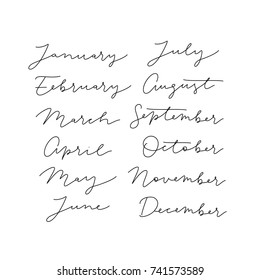 January July
February August
March September
April October
May November
June December
shutterstock.com · 741573589